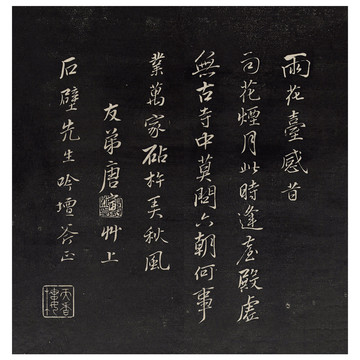 雨花臺感昔
司花煙月此時逢臺殿虛
無古寺中莫問六朝何事
業萬家砧杵美秋風
友弟唐
艸上
石壁先生吟壇答正